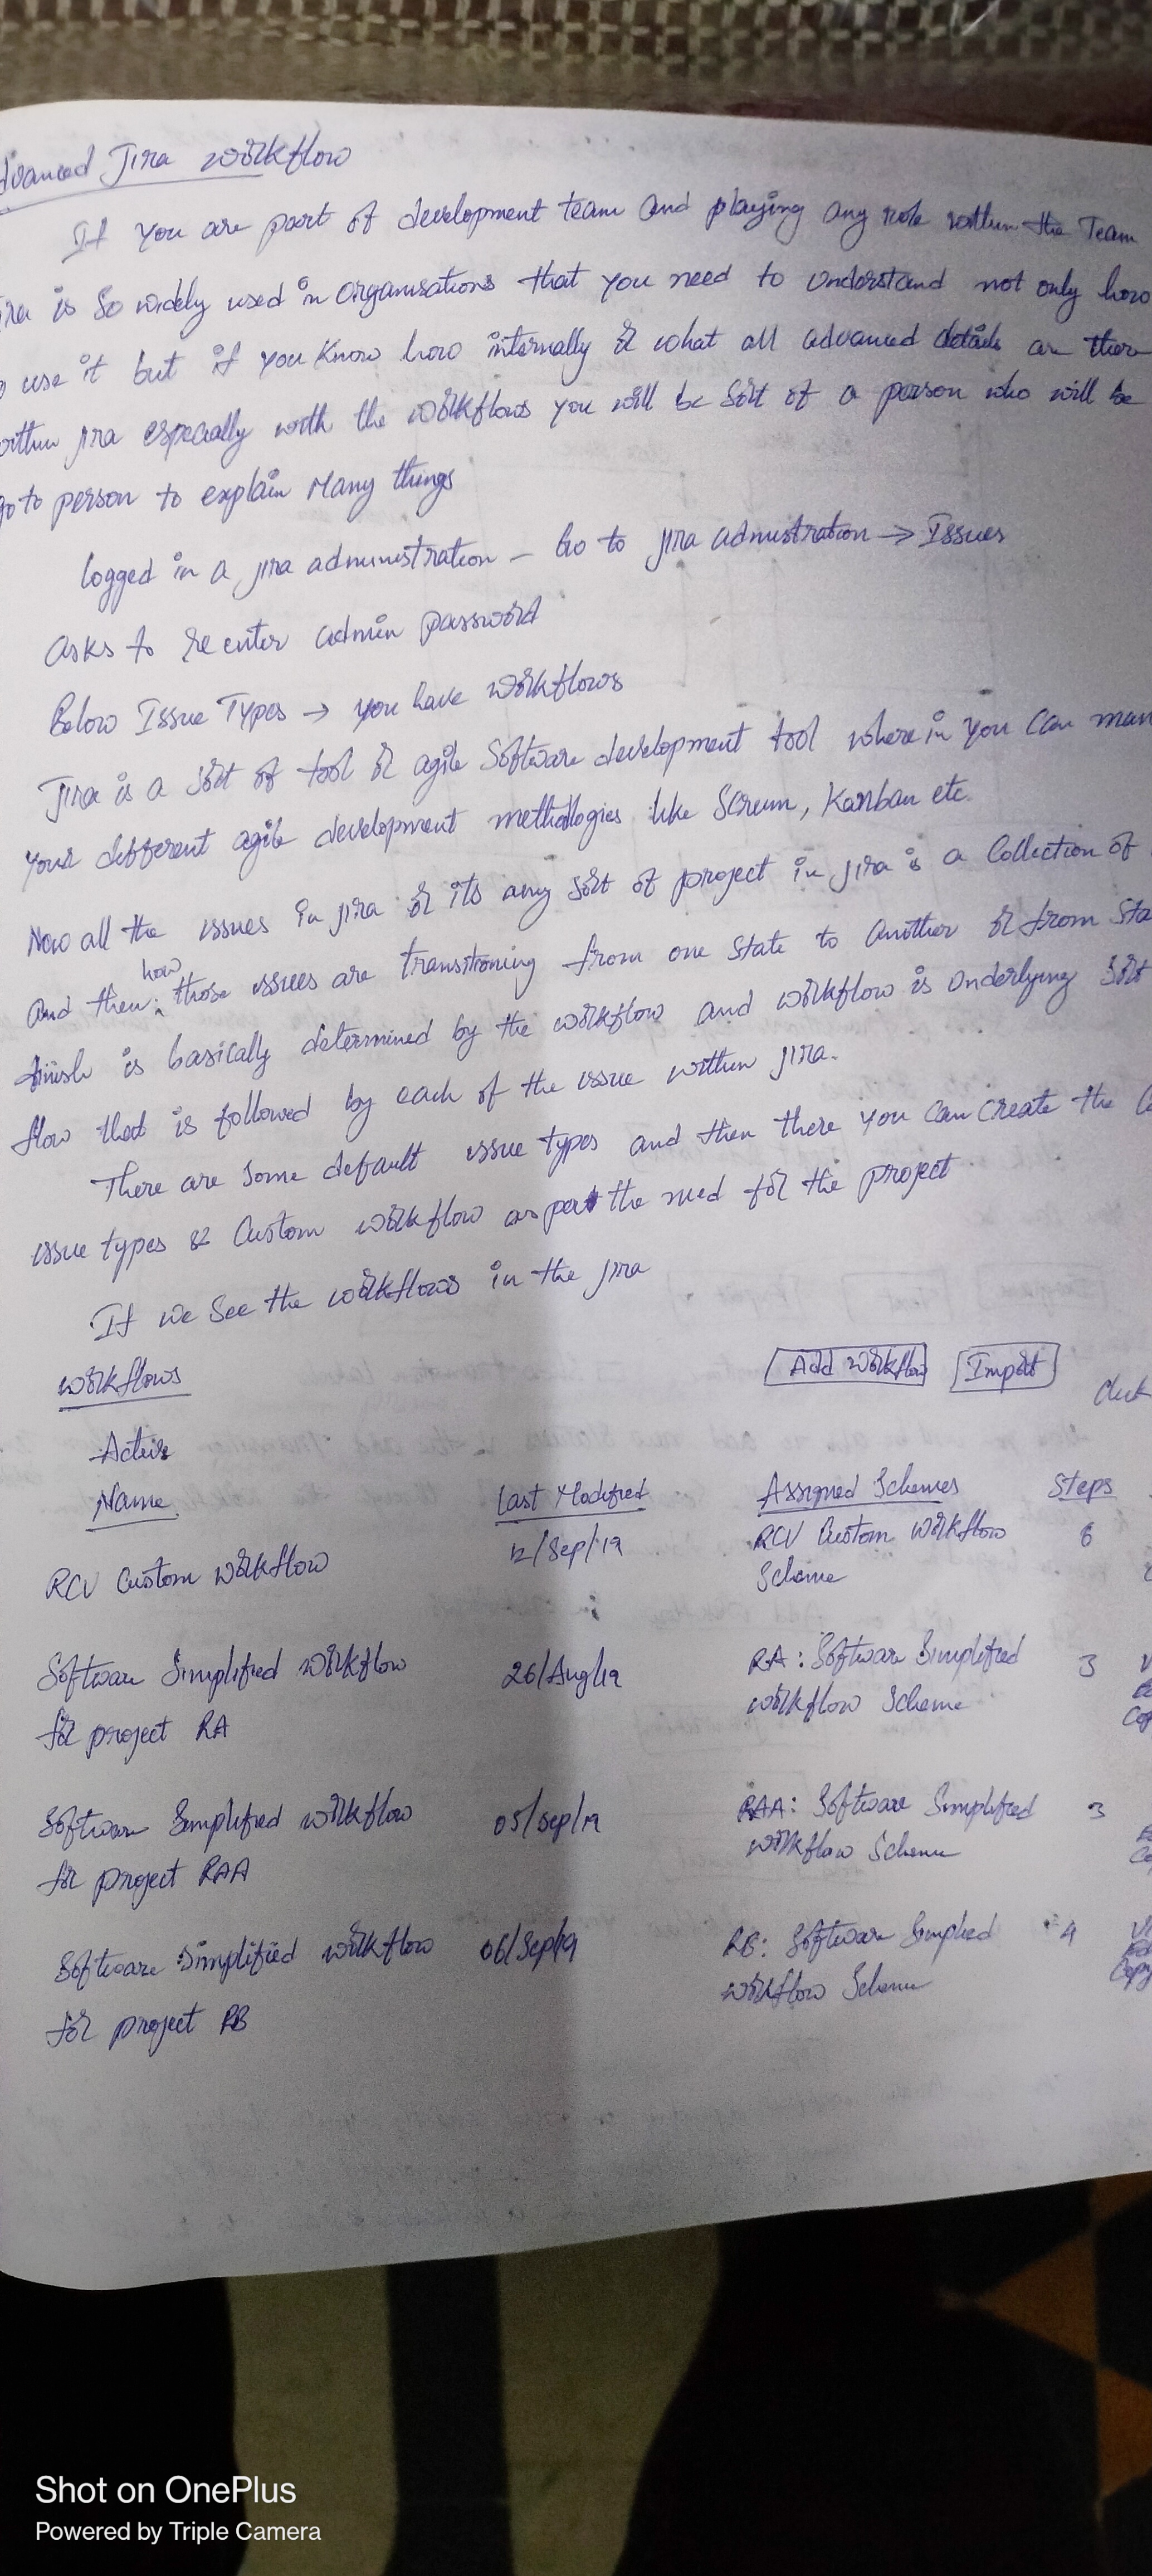 dvanced Jira workflow
If you are part of development team and playing any role within the Team
ira is so widely used in organisations that you need to understand not only how
o use it but if you know how internally & what all advanced details are there
within jira especially with the workflows you will be sort of a person who will be
go to person to explain many things
logged in a jira administration – Go to jira admistration → Issues
asks to re enter admin password
Below Issue Types → you have workflows
Jira is a sort of tool or agile software development tool where in you can man
your different agile development methodlogies like Scrum, Kanban etc
Now all the issues in jira or its any sort of project in jira is a collection of
and then how those issues are transitioning from one state to another or from sta
finish is basically determined by the workflow and workflow is underlying sort
flow that is followed by each of the issue within jira.
There are some default issue types and then there you can create the C
issue types & custom workflow as per the need for the project
If we see the workflows in the jira
Workflows Add workflow Import
Active
Name Last Modified Assigned Schemes Steps
RCV Custom workflow 12/Sep/19 RCV Custom Workflow 6
Scheme
Software Simplified workflow 26/Aug/19 RA: Software Simplified 3
for project RA workflow Scheme
Software Simplified workflow 05/Sep/19 RAA: Software Simplified 3
for project RAA workflow Scheme
Software Simplified workflow 06/Sep/19 RB: Software Simplied 4
for project RB workflow Scheme
Copy
Shot on OnePlus
Powered by Triple Camera